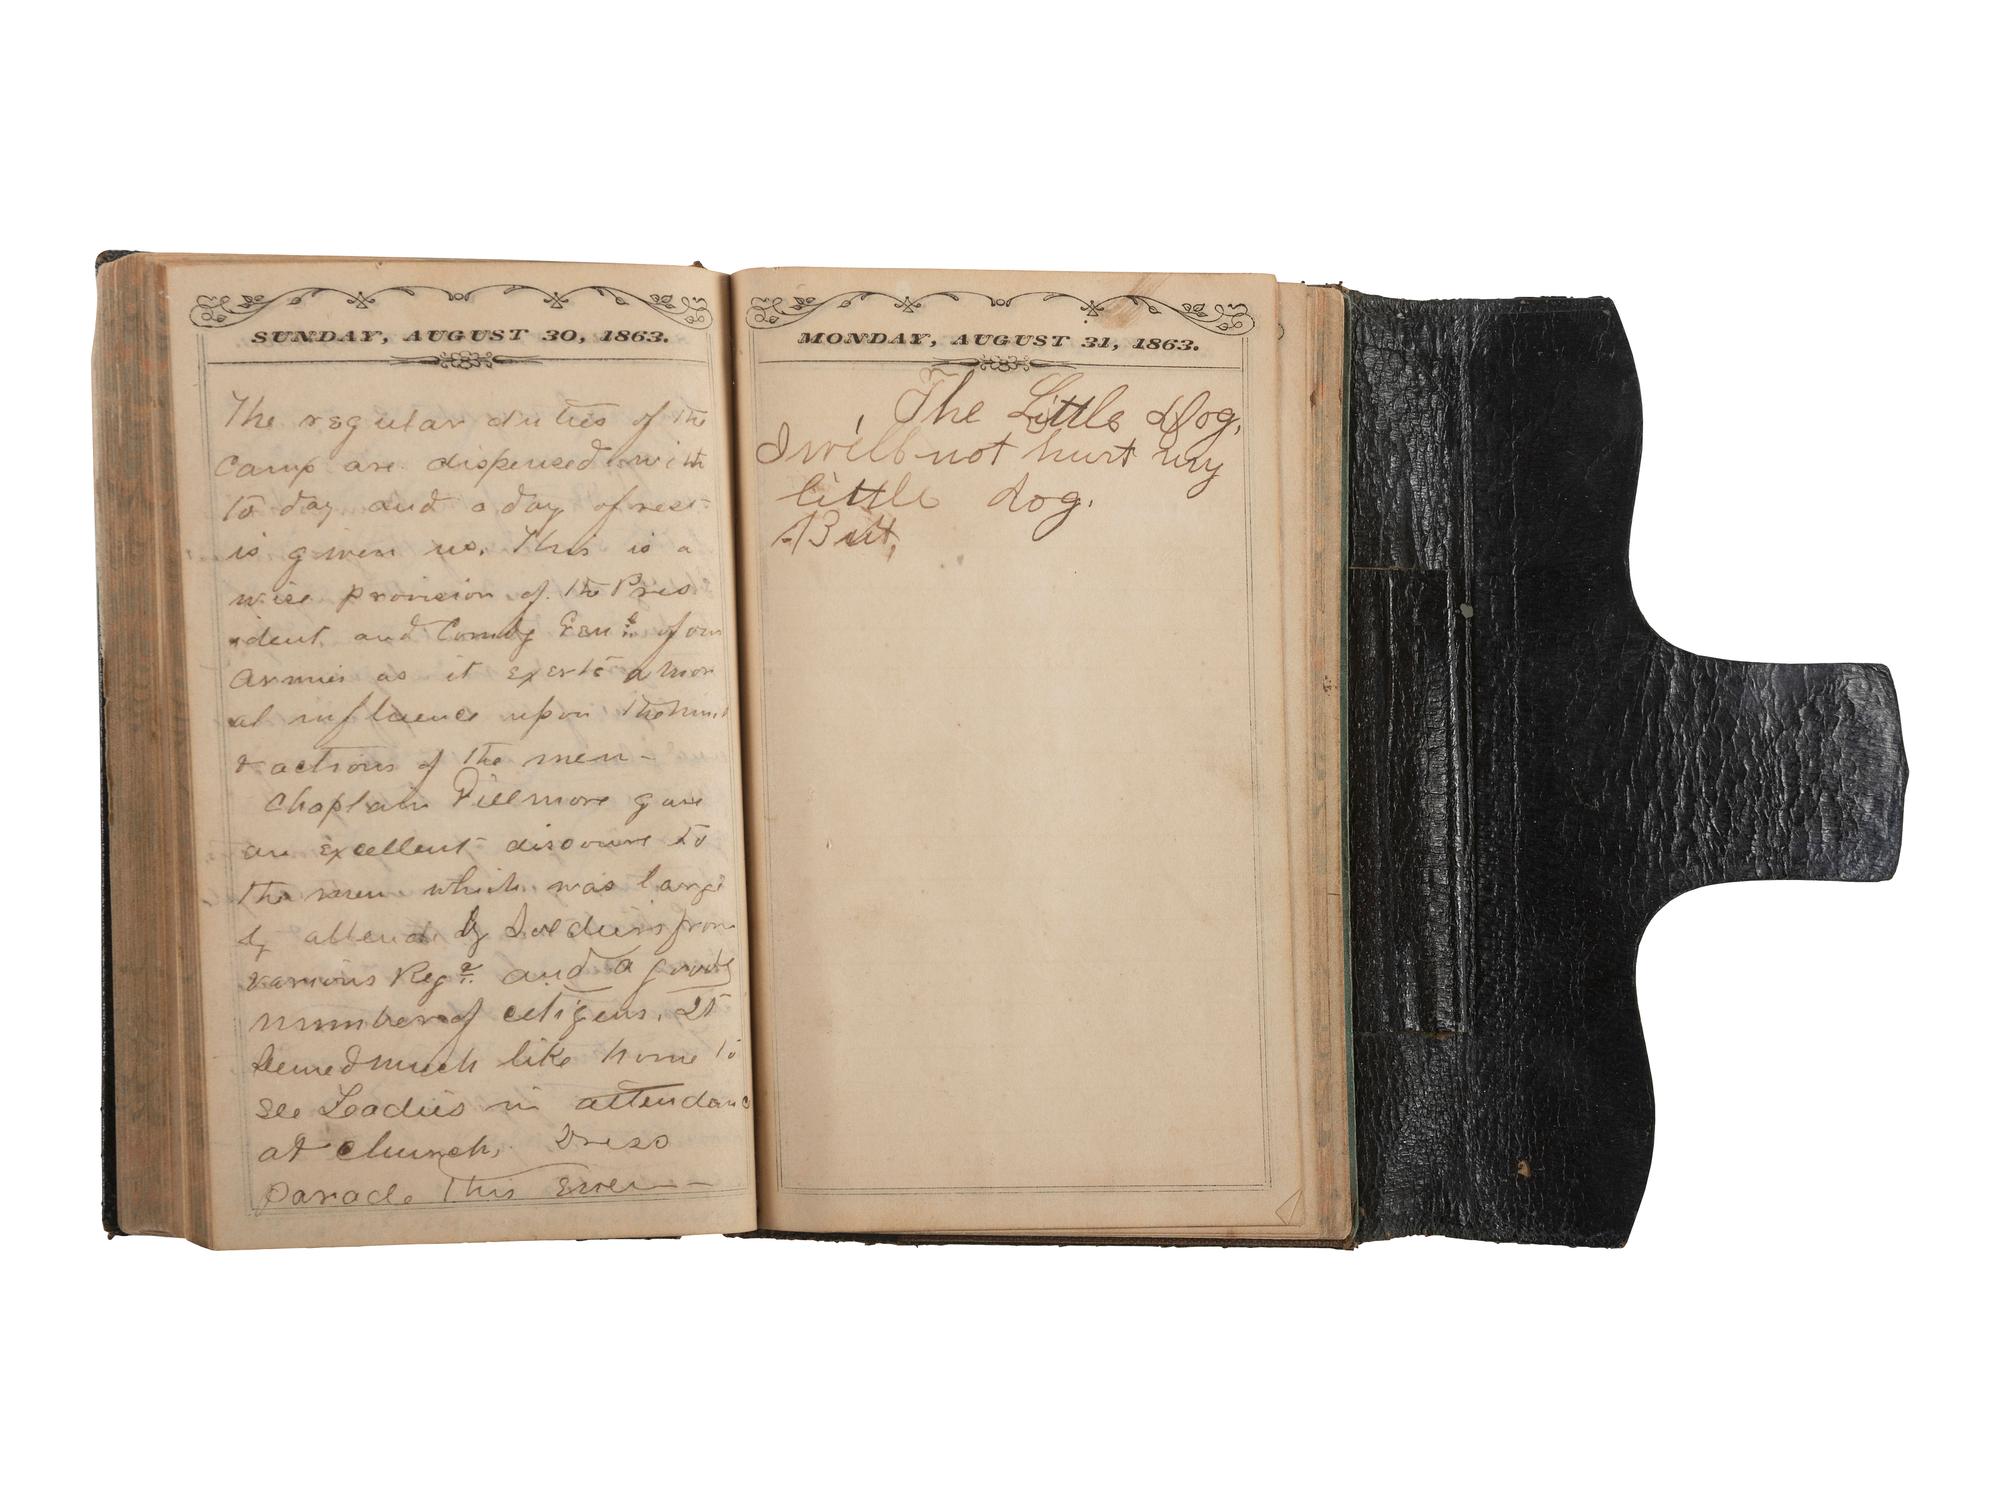 SUNDAY, AUGUST 30, 1863.
The regular duties of the
Camp are dispensed with
to day and a day of rest
is given us. This is a
wise provision of the Pres
ident and Comdg Genl of our
Armies as it exerts a mor
al influence upon the mind
& actions of the men –
Chaplain Fillmore gave
an excellent discourse to
the men which was large
ly attend by Soldiers from
various Regt and a goodly
number of citizens. It
semed much like home to
see Leadies in attendanc
at church, Dress
parade this Even –
MONDAY, AUGUST 31, 1863.
The Little Dog,
I will not hurt my
little dog.
But,